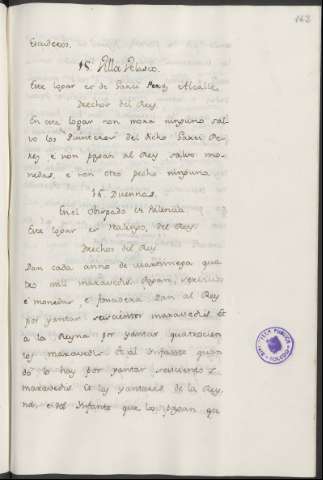 163
Escuderos.
15. Villa Velasco.
Este logar es de Garci Perez Alcalle.
Drechos del Rey.
En este logar non mora ninguno sal-
vo los Quinteros del dicho Garci Pe-
rez e non pagan al Rey salvo mo-
nedas, e non otro pecho ninguno.
16. Duennas.
En el obispado de Palencia.
Este logar es Realengo, del Rey.
Drechos del Rey.
Dan cada anno de martiniega qua-
tro mil maravedis. Pagan, servicios
e monedas, e fonsadera. Dan al Rey
por yantar seiscientos maravedis. Et
a la Reyna por yantar quatrocien
tos maravedis. Et al Infante quan
do lo hay por yantar
maravedis. Et los yantares de la Rey-
na, e del Infante que los pagan que